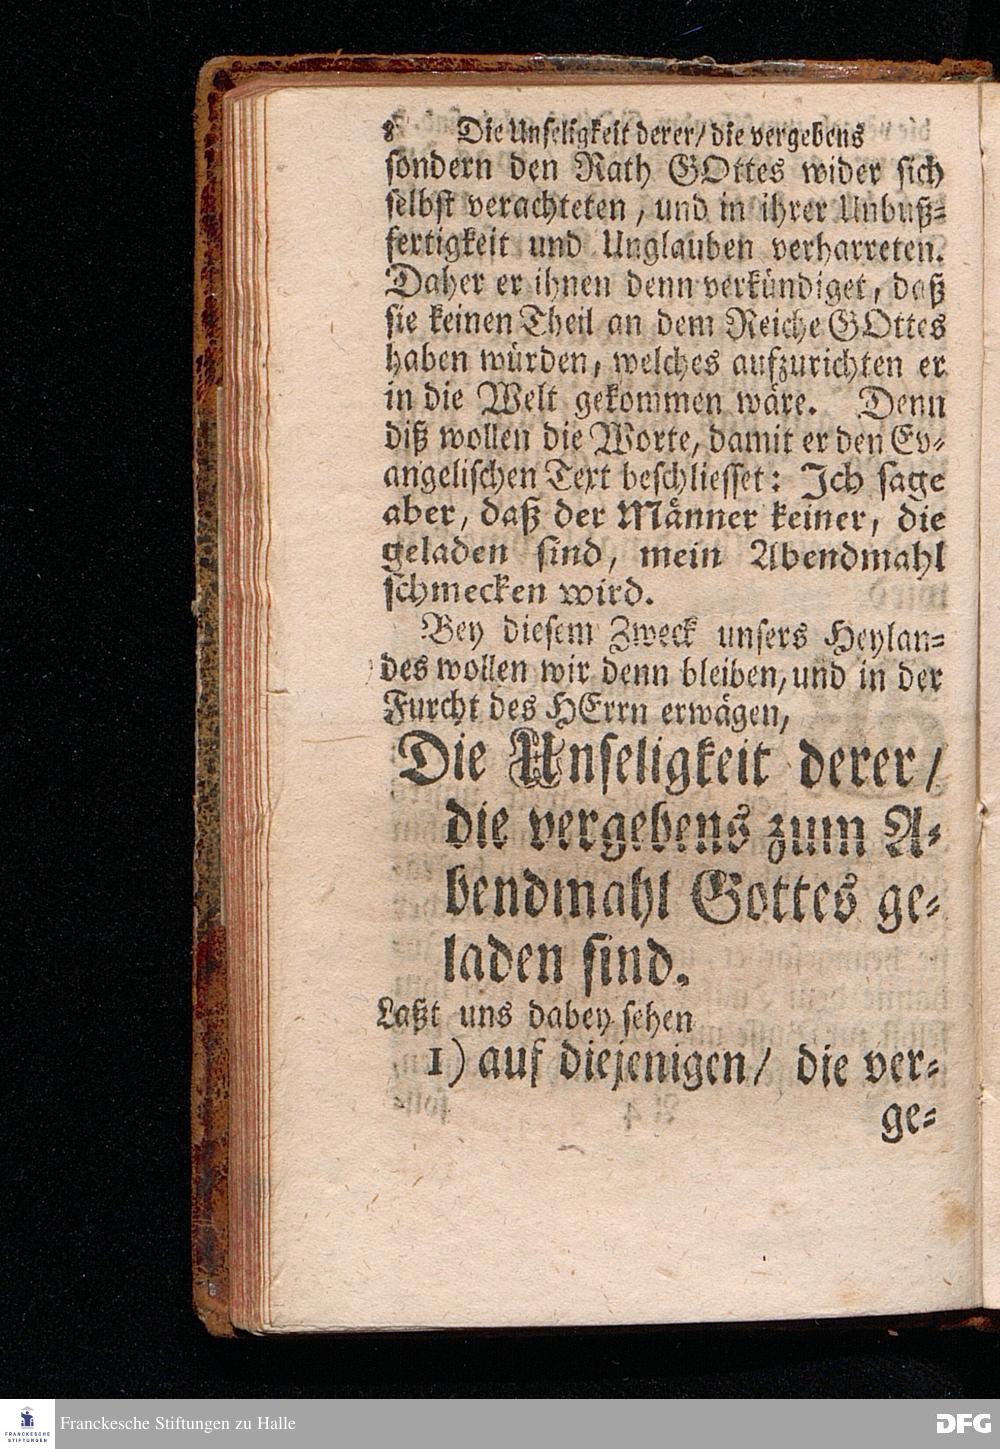 8 Die Unseligkeit derer/ die vergebens
sondern den Rath GOttes wider sich
selbst verachteten, und in ihrer Unbuß-
fertigkeit und Unglauben verharreten.
Daher er ihnen denn verkündiget, daß
sie keinen Theil an dem Reiche GOttes
haben würden, welches aufzurichten er
in die Welt gekommen wäre. Denn
diß wollen die Worte, damit er den Ev-
angelischen Text beschliesset: Ich sage
aber, daß der Männer keiner, die
geladen sind, mein Abendmahl
schmecken wird.
Bey diesem Zweck unsers Heylan-
des wollen wir denn bleiben, und in der
Furcht des HErrn erwägen,
Die Unseligkeit derer/
die vergebens zum A-
bendmahl Gottes ge-
laden sind.
Laßt uns dabey sehen
1) auf diejenigen/ die ver-
ge-
FRANCKESCHE
STIFTUNGEN
Franckesche Stiftungen zu Halle
DFG